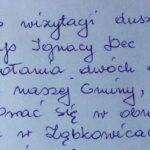 o wizytacji dusz
p Ignacy Dec
ołania dwóch
naszej Gminy,
ować się w
w Ząbkowicac